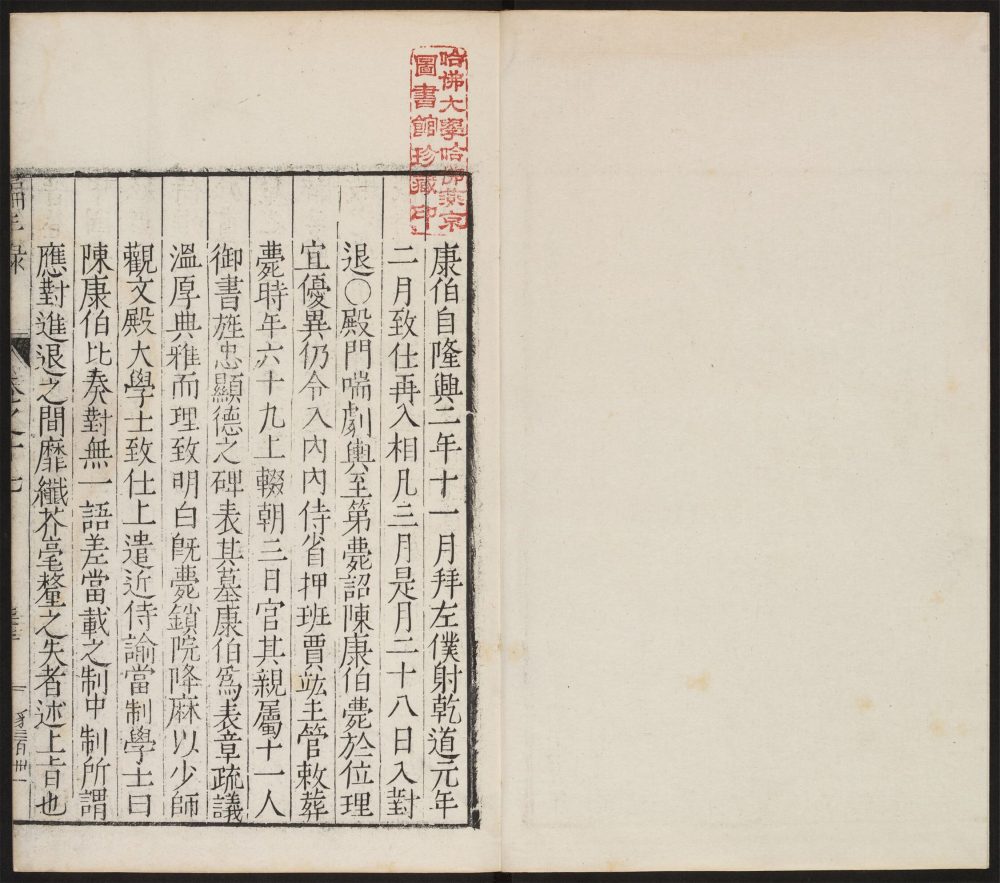 哈佛大學哈佛燕京
圖書館珍藏印
康伯自隆興二年十一月拜左僕射乾道元年
二月致仕再入相凡三月是月二十八日入對
退○殿門喘劇輿至第薨詔陳康伯薨於位理
宜優異仍令入內內侍省押班賈竑主管敕葬
薨時年六十九上輟朝三日官其親屬十一人
御書旌忠顯德之碑表其墓康伯爲表章疏議
溫厚典雅而理致明白旣薨鎖院降麻以少師
觀文殿大學士致仕上遣近侍諭當制學士曰
陳康伯比奏對無一語差當載之制中制所謂
應對進退之間靡纖芥毫釐之失者述上旨也
編年錄
卷之十七